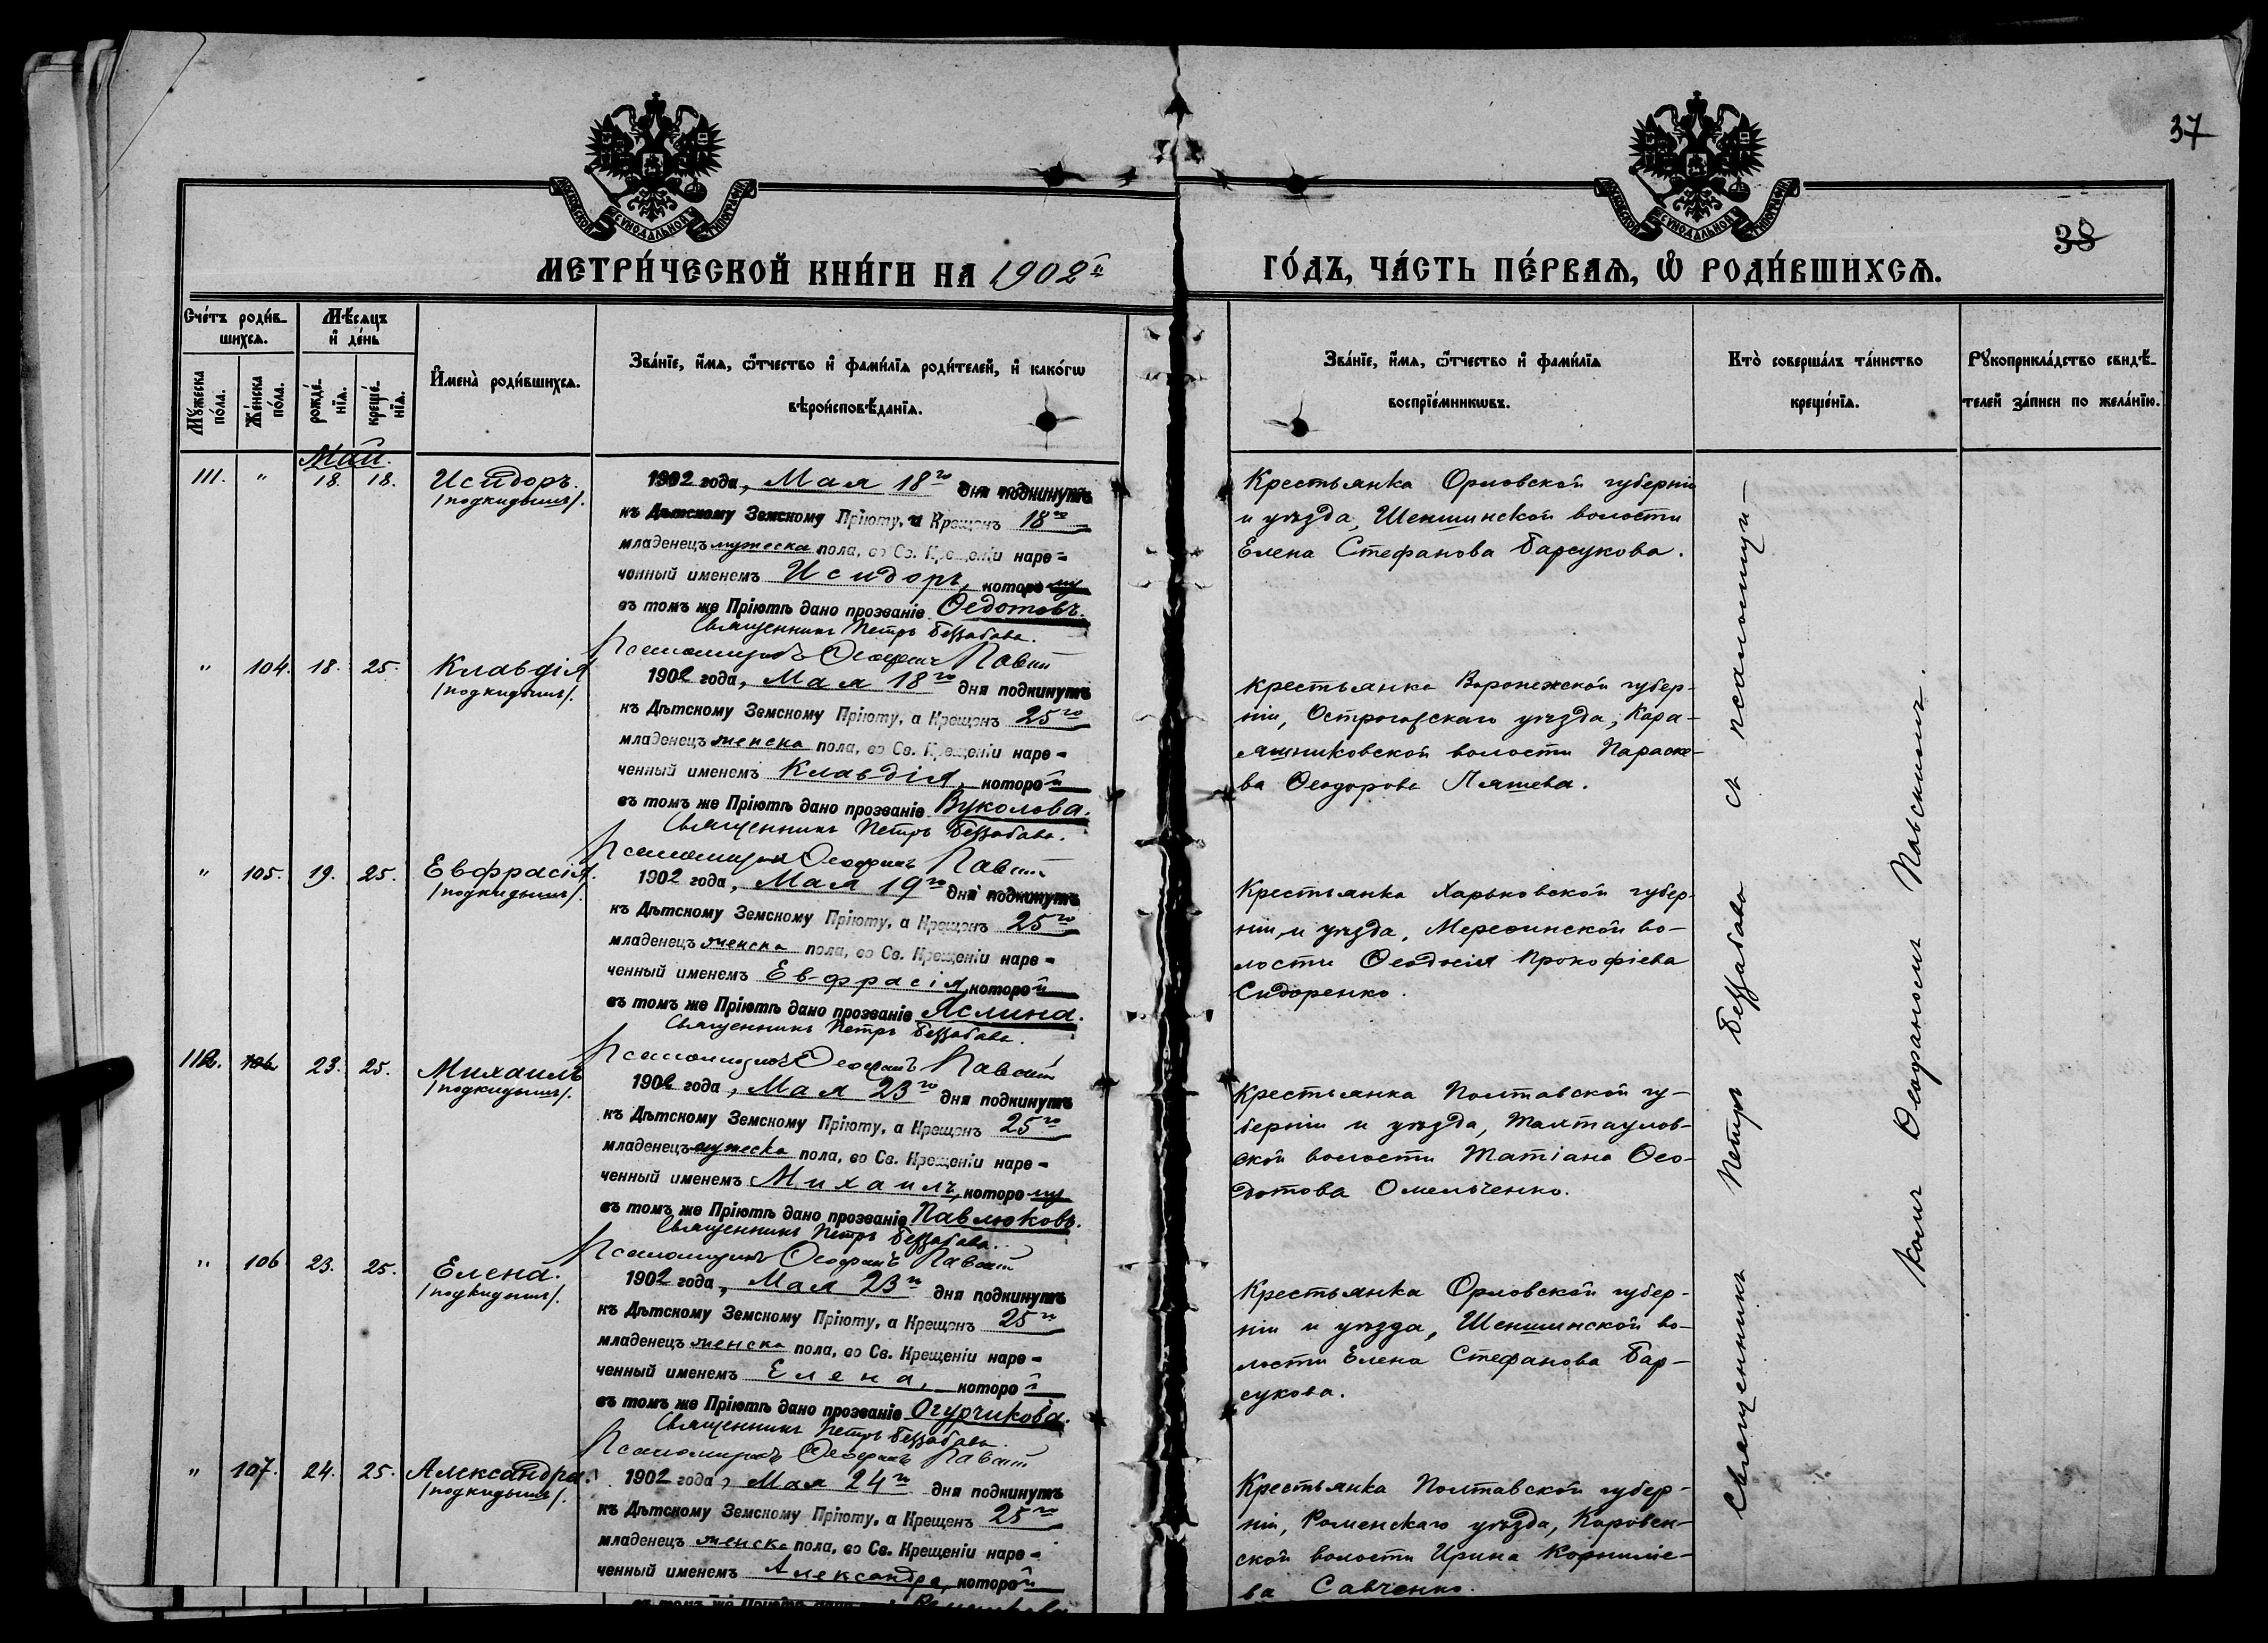 37
38
МОСКОВСКОЙ СѴНОДАЛЬНОЙ ТИПОГРАФІИ
МОСКОВСКОЙ СѴНОДАЛЬНОЙ ТИПОГРАФІИ
МЕТРИ́ЧЕСКОЙ КНИ́ГИ НА 1902й
ГО́ДЪ, ЧА́СТЬ ПЕ́РВАЯ, Ѡ҆ РОДИ́ВШИХСЯ.
Сче́тъ роди́в-
шихся.
Мѣ́сяцъ
и де́нь
Мꙋ́жеска
по́ла.
Же́нска
по́ла.
рожде́-
нїя.
креще́-
нїя.
И҆мена̀ роди́вшихся.
Зва́нїе, и҆́мя, ѻ҆́тчество и҆ фамі́лїя роди́телей, и҆ како́гѡ
вѣроисповѣ́данїя.
Зва́нїе, и҆́мя, ѻ҆́тчество и҆ фамі́лїя
воспрїе́мникѡвъ.
Кто̀ соверша́лъ та́инство
креще́нїя.
Рꙋкоприкла́дство свидѣ́-
телей за́писи по жела́нїю.
Май.
111. " 18. 18. Исидоръ.
/подкидышъ/.
1902 года, Мая 18го дня подкинутъ
къ Дѣтскому Земскому Пріюту, а Крещенъ 18го
младенецъ мужеска пола, во Св. Крещеніи наре-
ченный именемъ Исидоръ, которому
въ томъ же Пріютѣ дано прозваніе Ѳедотовъ.
Священникъ Петръ Беззабава.
Псаломщикъ Ѳеофанъ Павскій
Крестьянка Орловской губерніи
и уѣзда, Шеншинской волости
Елена Стефанова Барсукова.
" 104. 18. 25. Клавдія
/подкидышъ/.
1902 года, Мая 18го дня подкинутъ
къ Дѣтскому Земскому Пріюту, а Крещенъ 25го
младенецъ женска пола, во Св. Крещеніи наре-
ченный именемъ Клавдія, которой
въ томъ же Пріютѣ дано прозваніе Вуколова.
Священникъ Петръ Беззабава.
Псаломщикъ Ѳеофанъ Павскій
Крестьянка Воронежской губер-
ніи, Острогожскаго уѣзда, Кара-
яшниковской волости Параске-
ва Ѳеодорова Ляшева.
" 105. 19. 25. Евфрасія.
/подкидышъ/.
1902 года, Мая 19го дня подкинутъ
къ Дѣтскому Земскому Пріюту, а Крещенъ 25го
младенецъ женска пола, во Св. Крещеніи наре-
ченный именемъ Евфрасія, которой
въ томъ же Пріютѣ дано прозваніе Яслина.
Священникъ Петръ Беззабава.
Псаломщикъ Ѳеофанъ Павскій
Крестьянка Харьковской губер-
ніи и уѣзда, Мерефинской во-
лости Ѳеодосія Прокофіева
Сидоренко.
112. 106 23. 25. Михаилъ
/подкидышъ/.
1902 года, Мая 23го дня подкинутъ
къ Дѣтскому Земскому Пріюту, а Крещенъ 25го
младенецъ мужеска пола, во Св. Крещеніи наре-
ченный именемъ Михаилъ, которому
въ томъ же Пріютѣ дано прозваніе Павлюковъ.
Священникъ Петръ Беззабава.
Псаломщикъ Ѳеофанъ Павскій
Крестьянка Полтавской гу-
берніи и уѣзда, Тахтаулов-
ской волости Татіана Ѳео-
дотова Омельченко.
" 106 23. 25. Елена.
/подкидышъ/.
1902 года, Мая 23го дня подкинутъ
къ Дѣтскому Земскому Пріюту, а Крещенъ 25го
младенецъ женска пола, во Св. Крещеніи наре-
ченный именемъ Елена, которой
въ томъ же Пріютѣ дано прозваніе Огурчикова.
Священникъ Петръ Беззабава.
Псаломщикъ Ѳеофанъ Павскій
Крестьянка Орловской губер-
ніи и уѣзда, Шеншинской во-
лости Елена Стефанова Бар-
сукова.
" 107. 24. 25. Александра.
/подкидышъ/.
1902 года, Мая 24го дня подкинутъ
къ Дѣтскому Земскому Пріюту, а Крещенъ 25го
младенецъ женска пола, во Св. Крещеніи наре-
ченный именемъ Александра, которой
въ томъ же Пріютѣ
Крестьянка Полтавской губер-
ніи, Роменскаго уѣзда, Коровен-
ской волости Ирина Корниліе-
ва Савченко.
Священникъ Петръ Беззабава съ псаломщи-
комъ Ѳеофаномъ Павскимъ.